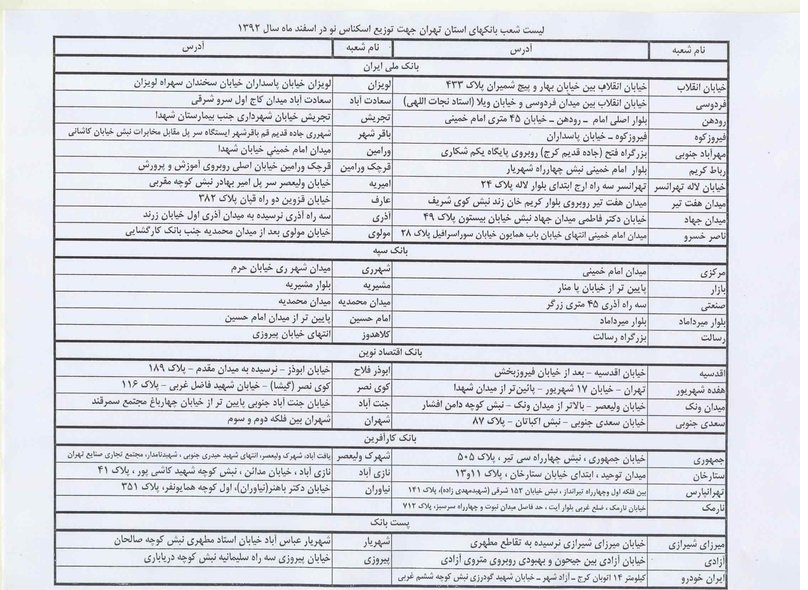 لیست شعب بانکهای استان تهران جهت توزیع اسکناس نو در اسفند ماه سال ۱۳۹۲
نام شعبه آدرس نام شعبه آدرس
بانک ملی ایران
خیابان انقلاب خیابان انقلاب بین خیابان بهار و پیچ شمیران پلاک ۴۳۳ لویزان لویزان خیابان پاسداران خیابان سخندان سهراه لویزان
فردوسی خیابان انقلاب بین میدان فردوسی و خیابان ویلا (استاد نجات اللهی) سعادت آباد سعادت آباد میدان کاج اول سرو شرقی
رودهن بلوار اصلی امام – رودهن – خیابان ۴۵ متری امام خمینی تجریش تجریش خیابان شهرداری جنب بیمارستان شهدا
فیروزکوه فیروزکوه – خیابان پاسداران باقر شهر شهرری جاده قدیم قم باقرشهر ایستگاه سر پل مقابل مخابرات نبش خیابان کاشانی
مهرآباد جنوبی بزرگراه فتح (جاده قدیم کرج) روبروی پایگاه یکم شکاری ورامین میدان امام خمینی خیابان شهدا
رباط کریم بلوار امام خمینی نبش چهارراه شهریار قرچک ورامین قرچک ورامین خیابان اصلی روبروی آموزش و پرورش
خیابان لاله تهرانسر تهرانسر سه راه ارج ابتدای بلوار لاله پلاک ۲۴ امیریه خیابان ولیعصر سر پل امیر بهادر نبش کوچه مقربی
میدان هفت تیر میدان هفت تیر روبروی بلوار کریم خان زند نبش کوی شریف عارف خیابان قزوین دو راه قپان پلاک ۳۸۲
میدان جهاد خیابان دکتر فاطمی میدان جهاد نبش خیابان بیستون پلاک ۴۹ آذری سه راه آذری نرسیده به میدان آذری اول خیابان زرند
ناصر خسرو میدان امام خمینی انتهای خیابان باب همایون خیابان سوراسرافیل پلاک ۲۸ مولوی خیابان مولوی بعد از میدان محمدیه جنب بانک کارگشایی
بانک سپه
مرکزی میدان امام خمینی شهرری میدان شهر ری خیابان حرم
بازار پایین تر از خیابان پا منار مشیریه بلوار مشیریه
صنعتی سه راه آذری ۴۵ متری زرگر میدان محمدیه میدان محمدیه
بلوار میرداماد بلوار میرداماد امام حسین پایین تر از میدان امام حسین
رسالت بزرگراه رسالت کلاهدوز انتهای خیابان پیروزی
بانک اقتصاد نوین
اقدسیه خیابان اقدسیه – بعد از خیابان فیروزبخش ابوذر فلاح خیابان ابوذر – نرسیده به میدان مقدم – پلاک ۱۸۹
هفده شهریور تهران – خیابان ۱۷ شهریور – پائین‌تر از میدان شهدا کوی نصر کوی نصر (گیشا) – خیابان شهید فاضل غربی – پلاک ۱۱۶
میدان ونک خیابان ولیعصر – بالاتر از میدان ونک – نبش کوچه دامن افشار جنت آباد خیابان جنت آباد جنوبی پایین تر از خیابان چهارباغ مجتمع سمرقند
سعدی جنوبی خیابان سعدی جنوبی – نبش اکباتان – پلاک ۸۷ شهران شهران بین فلکه دوم و سوم
بانک کارآفرین
جمهوری خیابان جمهوری ، نبش چهارراه سی تیر ، پلاک ۵۰۵ شهرک ولیعصر یافت آباد، شهرک ولیعصر، انتهای شهید حیدری جنوبی ، شهیدنامدار، مجتمع تجاری صنایع تهران
ستارخان میدان توحید ، ابتدای خیابان ستارخان ، پلاک ۱۱و۱۳ نازی آباد نازی آباد ، خیابان مدائن ، نبش کوچه شهید کاشی پور ، پلاک ۴۱
تهرانپارس بین فلکه اول وچهارراه تیرانداز ، نبش خیابان ۱۵۲ شرقی (شهیدمهدی زاده)، پلاک ۱۴۱ نیاوران خیابان دکتر باهنر(نیاوران)، اول کوچه همایونفر، پلاک ۳۵۱
نارمک خیابان نارمک ، ضلع غربی بلوار آیت ، حد فاصل میدان نبوت و چهارراه سرسبز، پلاک ۷۱۲
پست بانک
میرزای شیرازی خیابان میرزای شیرازی نرسیده به تقاطع مطهری شهریار شهریار عباس آباد خیابان استاد مطهری نبش کوچه صالحان
آزادی خیابان آزادی بین جیحون و بهبودی روبروی متروی آزادی پیروزی خیابان پیروزی سه راه سلیمانیه نبش کوچه دریاباری
ایران خودرو کیلومتر ۱۴ اتوبان کرج – آزاد شهر – خیابان شهید گودرزی نبش کوچه ششم غربی